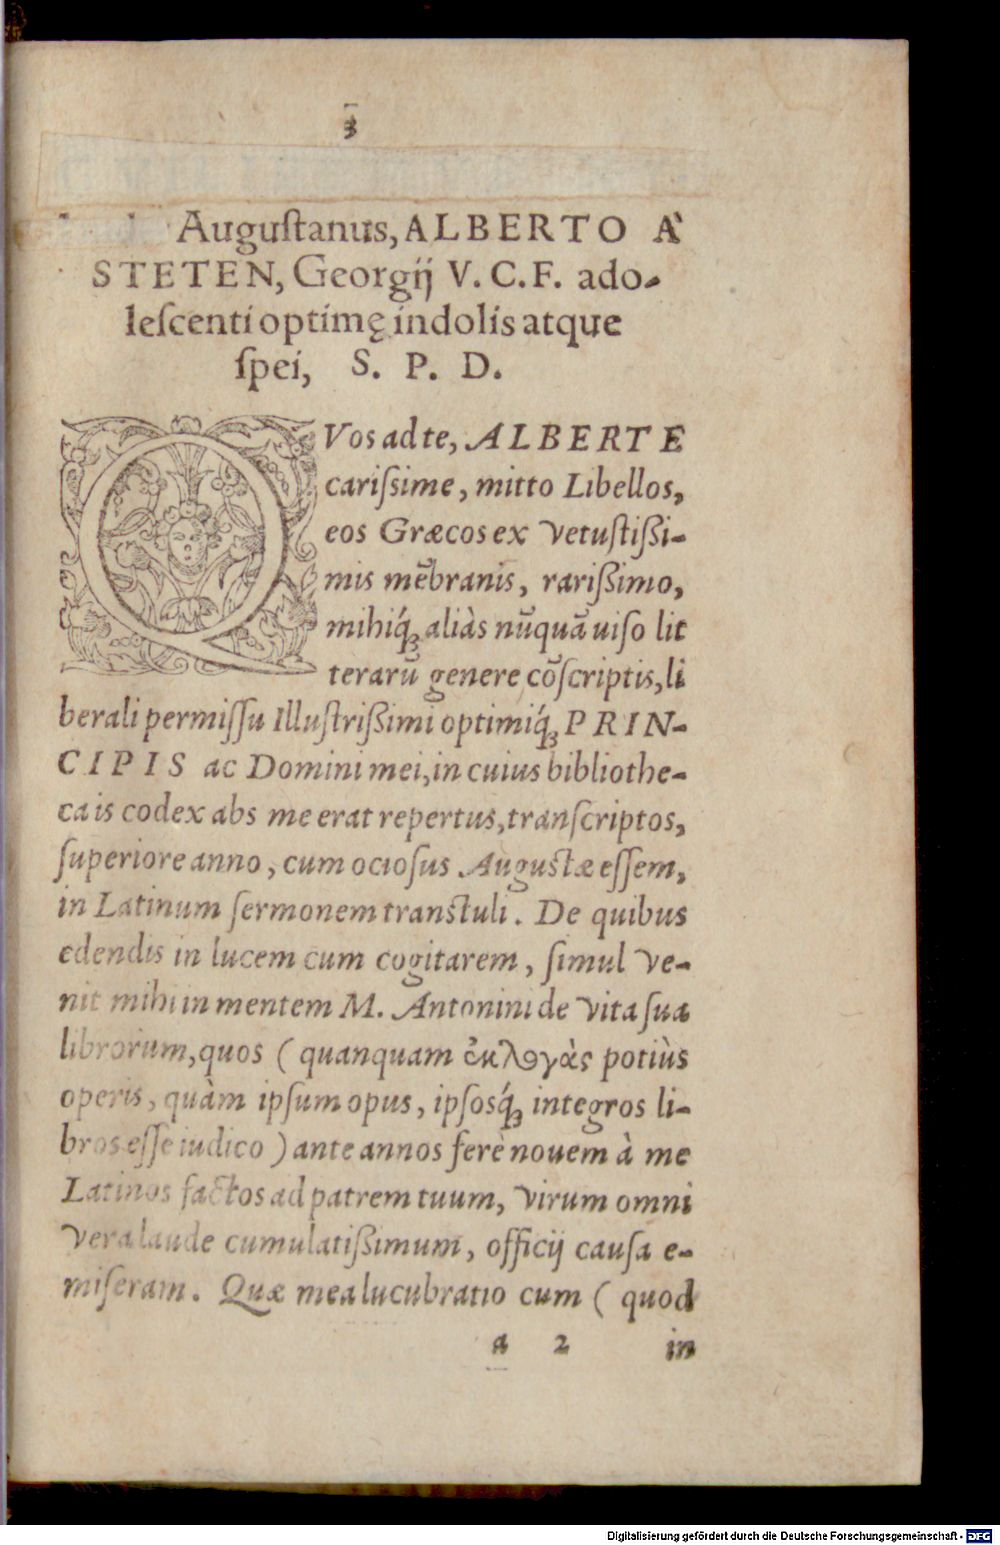 3
Auguſtanus, ALBERTO À
STETEN, Georgij V. C. F. ado-
leſcenti optimę indolis atque
ſpei, S. P. D.
QVos ad te, ALBERTE
cariſsime, mitto Libellos,
eos Græcos ex vetuſtißi-
mis mēbranis, rarißimo,
mihiq́ꝫ aliàs nūquā uiſo lit
terarū genere cōſcriptis, li
berali permiſſu Illuſtrißimi optimiq́ꝫ PRIN-
CIPIS ac Domini mei, in cuius bibliothe-
ca is codex abs me erat repertus, tranſcriptos,
ſuperiore anno, cum ocioſus Auguſtæ eſſem,
in Latinum ſermonem tranſtuli. De quibus
edendis in lucem cum cogitarem, ſimul ve-
nit mihi in mentem M. Antonini de vita ſua
librorum, quos ( quanquam ἐκλογὰς potiùs
operis, quàm ipſum opus, ipſosq́ꝫ integros li-
bros eſſe iudico ) ante annos ferè nouem à me
Latinos factos ad patrem tuum, virum omni
vera laude cumulatißimum, officij cauſa e-
miſeram. Quæ mea lucubratio cum ( quod
a 2 in
Digitalisierung gefördert durch die Deutsche Forschungsgemeinschaft - DFG